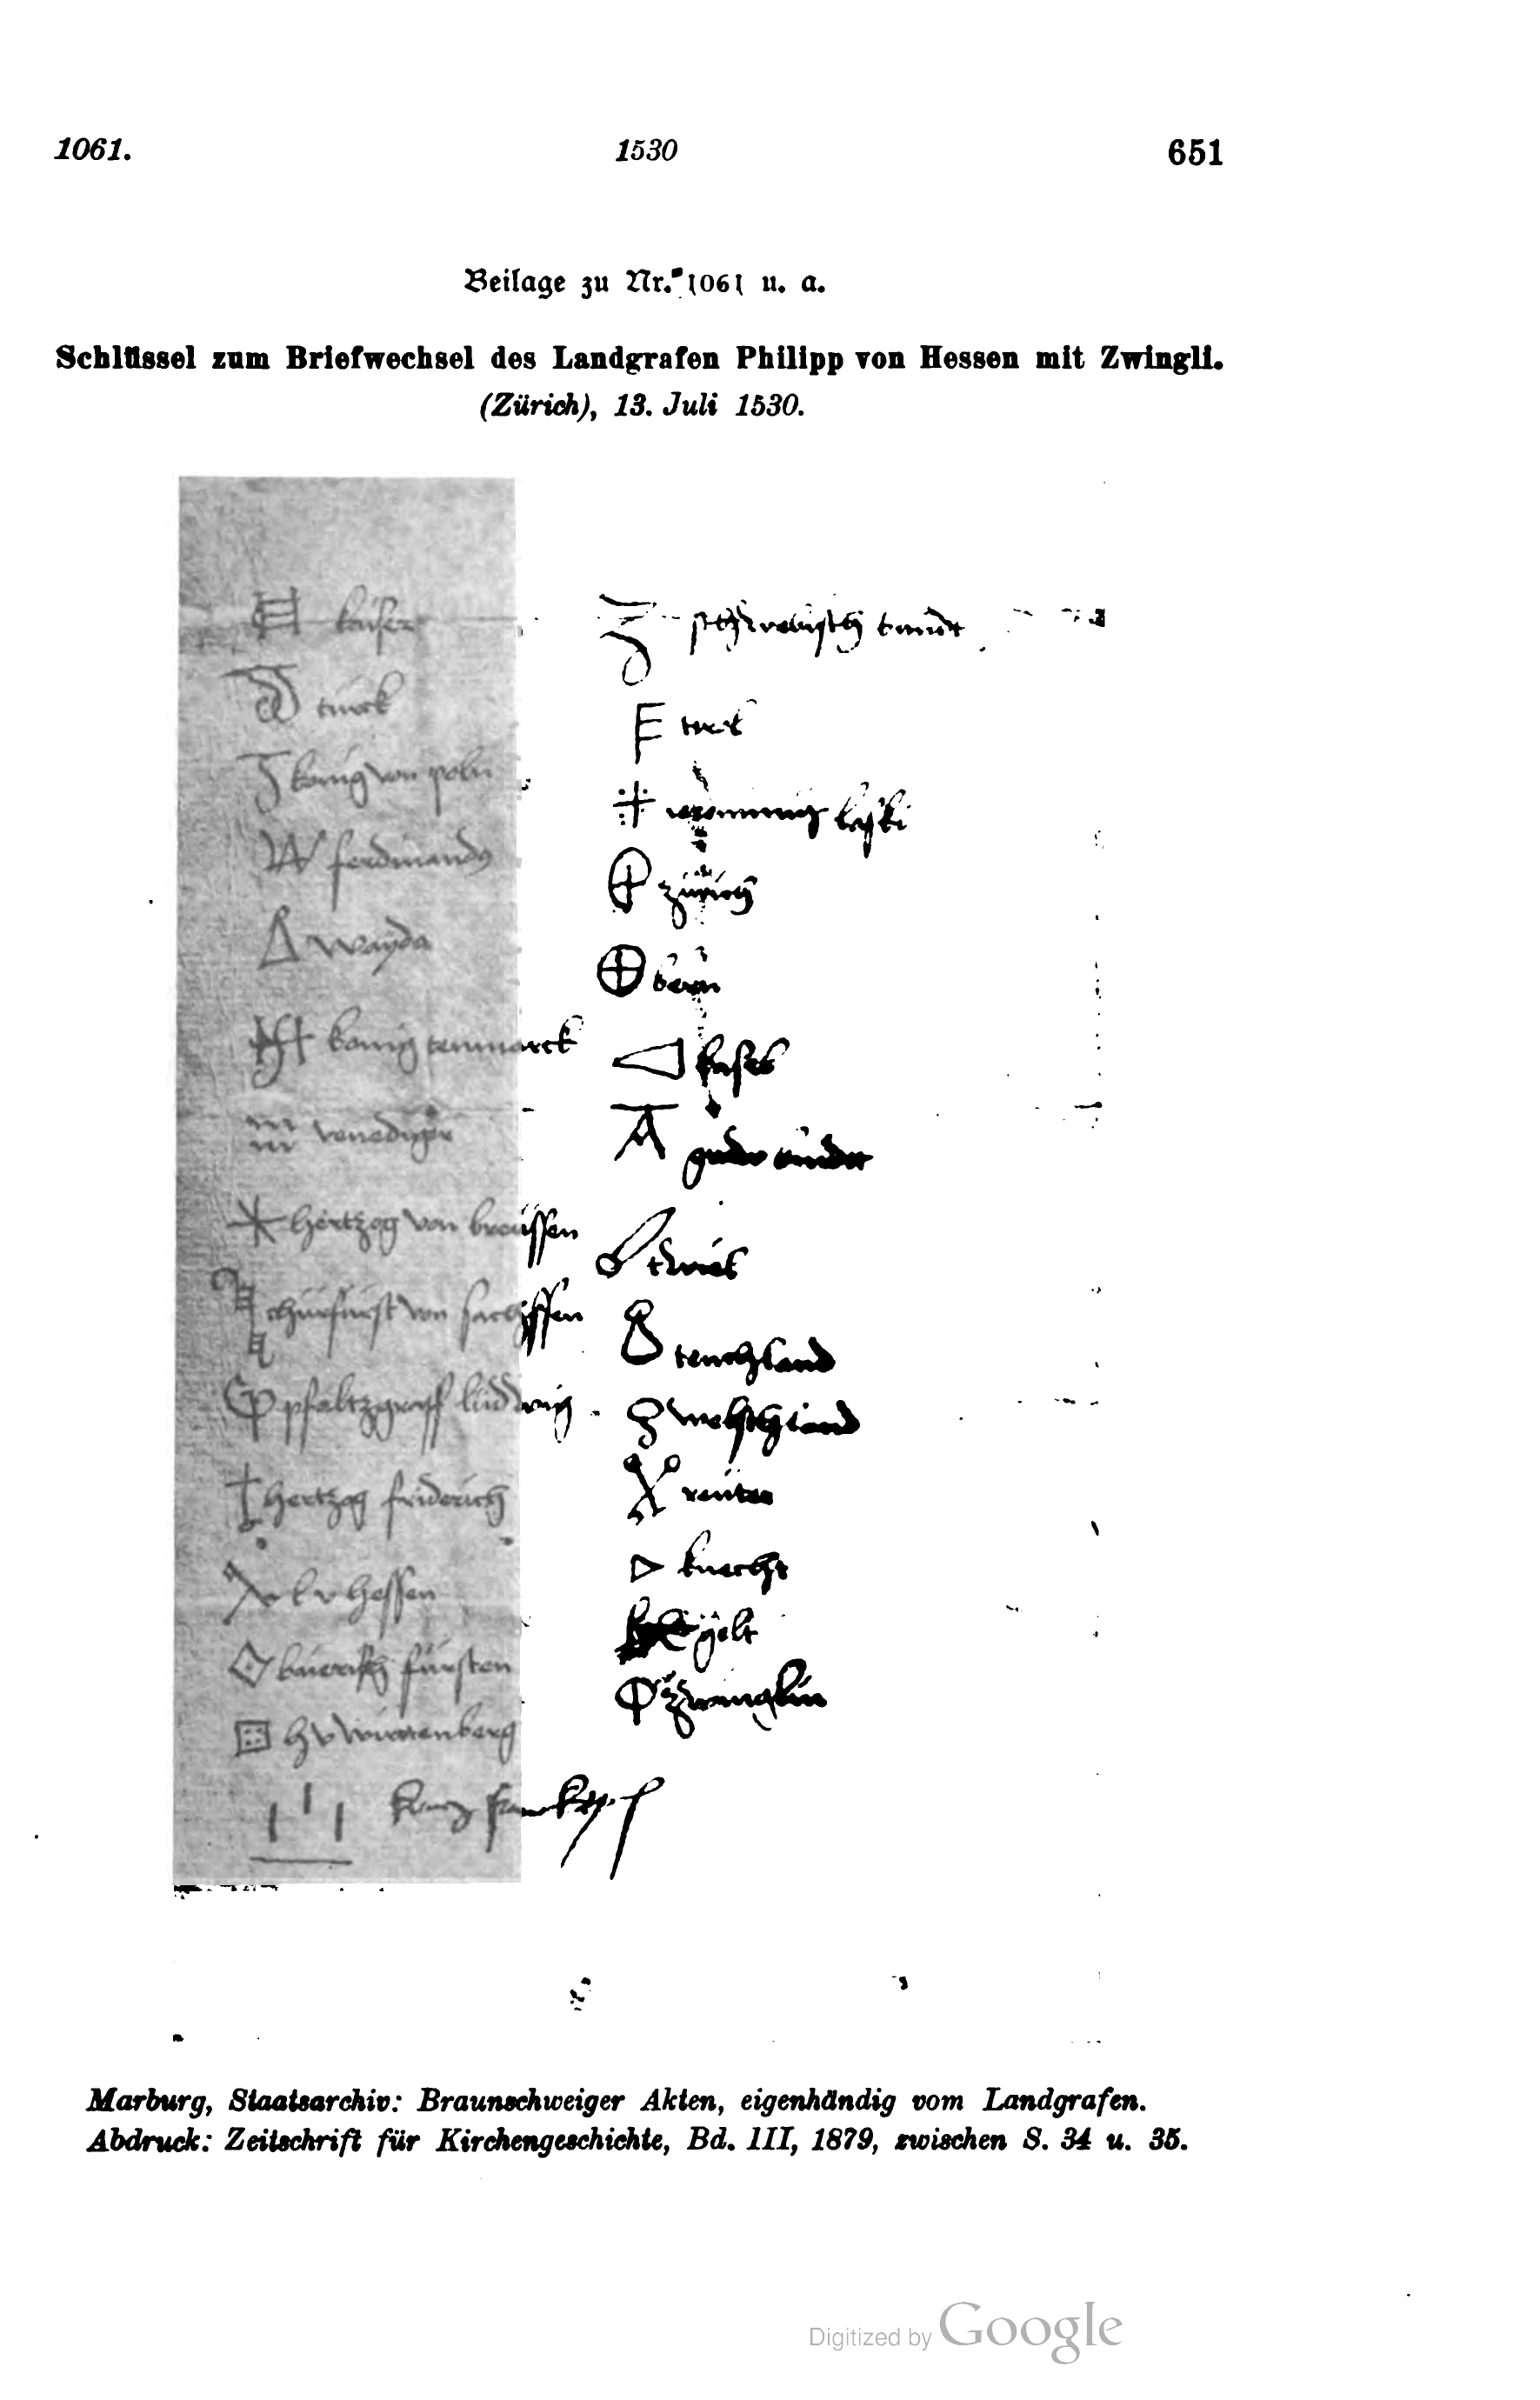 1061. 1530 651
Beilage zu Nr. 1061 u. a.
Schlüssel zum Briefwechsel des Landgrafen Philipp von Hessen mit Zwingli.
(Zürich), 13. Juli 1530.
kaiser
turck
konig von poln
ferdinandus
wayda
konig tenmarck
venediger
hertzog von breussen
churfurst von sachssen
pfaltzgraff ludwig
hertzog friderich
l v hessen
baierisch fursten
h v wirttenberg
zurich
bern
basel
teuchland
welschland
reuter
knecht
gelt
zwinglin
Marburg, Staatsarchiv: Braunschweiger Akten, eigenhändig vom Landgrafen.
Abdruck: Zeitschrift für Kirchengeschichte, Bd. III, 1879, zwischen S. 34 u. 35.
Digitized by Google